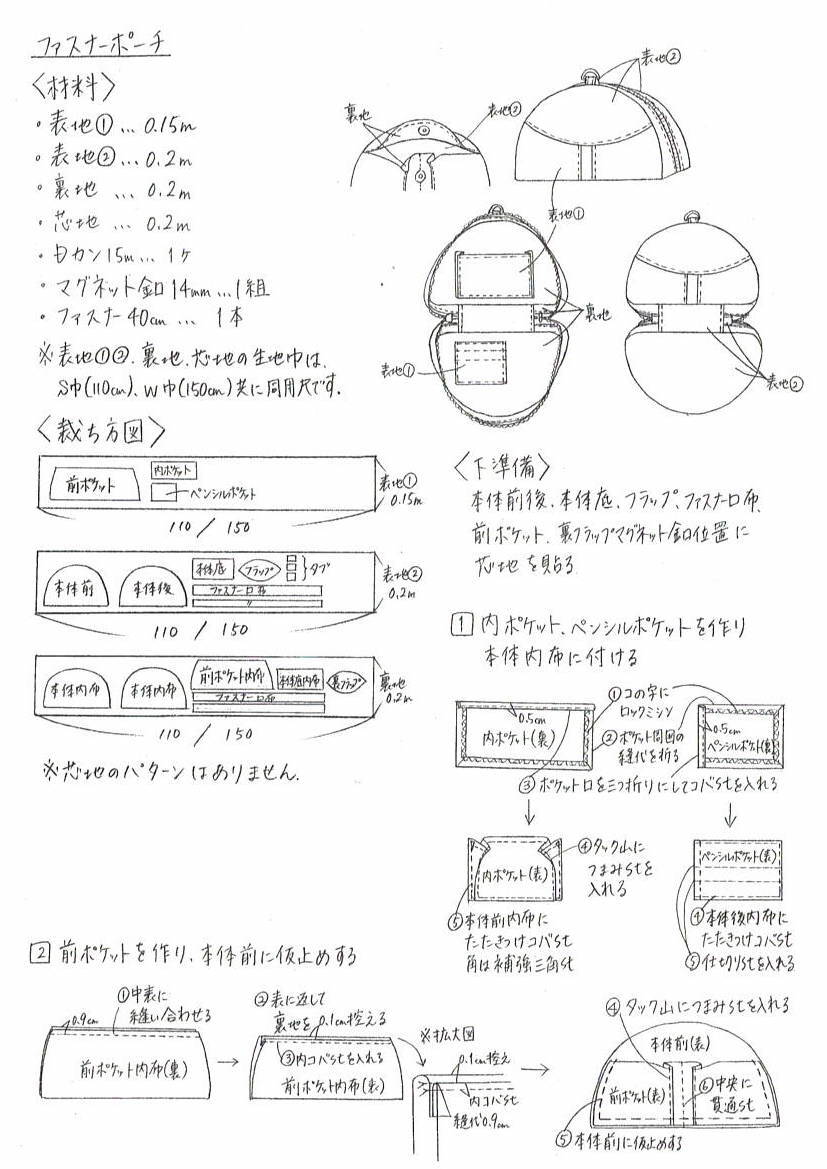 ファスナーポーチ
〈材料〉
・表地①…0.15m
・表地②…0.2m
・裏地 …0.2m
・芯地 …0.2m
・Dカン15m…1ケ
・マグネット釦14mm…1組
・ファスナー40cm…1本
※表地①②、裏地、芯地の生地巾は、
S巾(110cm)、W巾(150cm)共に同用尺です。
表地②
裏地
表地②
表地①
裏地
表地①
表地②
〈裁ち方図〉
前ポケット
内ポケット
ペンシルポケット
表地①
0.15m
110 / 150
本体前
本体後
本体底
フラップ
タブ
ファスナー口布
〃
表地②
0.2m
110 / 150
本体内布
本体内布
前ポケット内布
本体底内布
裏フラップ
ファスナー口布
裏地
0.2m
110 / 150
※芯地のパターンはありません。
〈下準備〉
本体前後、本体底、フラップ、ファスナー口布、
前ポケット、裏フラップマグネット釦位置に
芯地を貼る
1 内ポケット、ペンシルポケットを作り
本体内布に付ける
①コの字に
ロックミシン
0.5cm
内ポケット(裏)
②ポケット周囲の
縫代を折る
0.5cm
ペンシルポケット(裏)
③ポケット口を三つ折りにしてコバstを入れる
内ポケット(表)
④タック山に
つまみstを
入れる
⑤本体前内布に
たたきつけコバst
角は補強三角st
ペンシルポケット(表)
④本体後内布に
たたきつけコバst
⑤仕切りstを入れる
2 前ポケットを作り、本体前に仮止めする
0.9cm
①中表に
縫い合わせる
前ポケット内布(裏)
②表に返して
裏地を0.1cm控える
③内コバstを入れる
前ポケット内布(表)
※拡大図
0.1cm控え
内コバst
縫代0.9cm
④タック山につまみstを入れる
本体前(表)
前ポケット(表)
⑥中央に
貫通st
⑤本体前に仮止めする